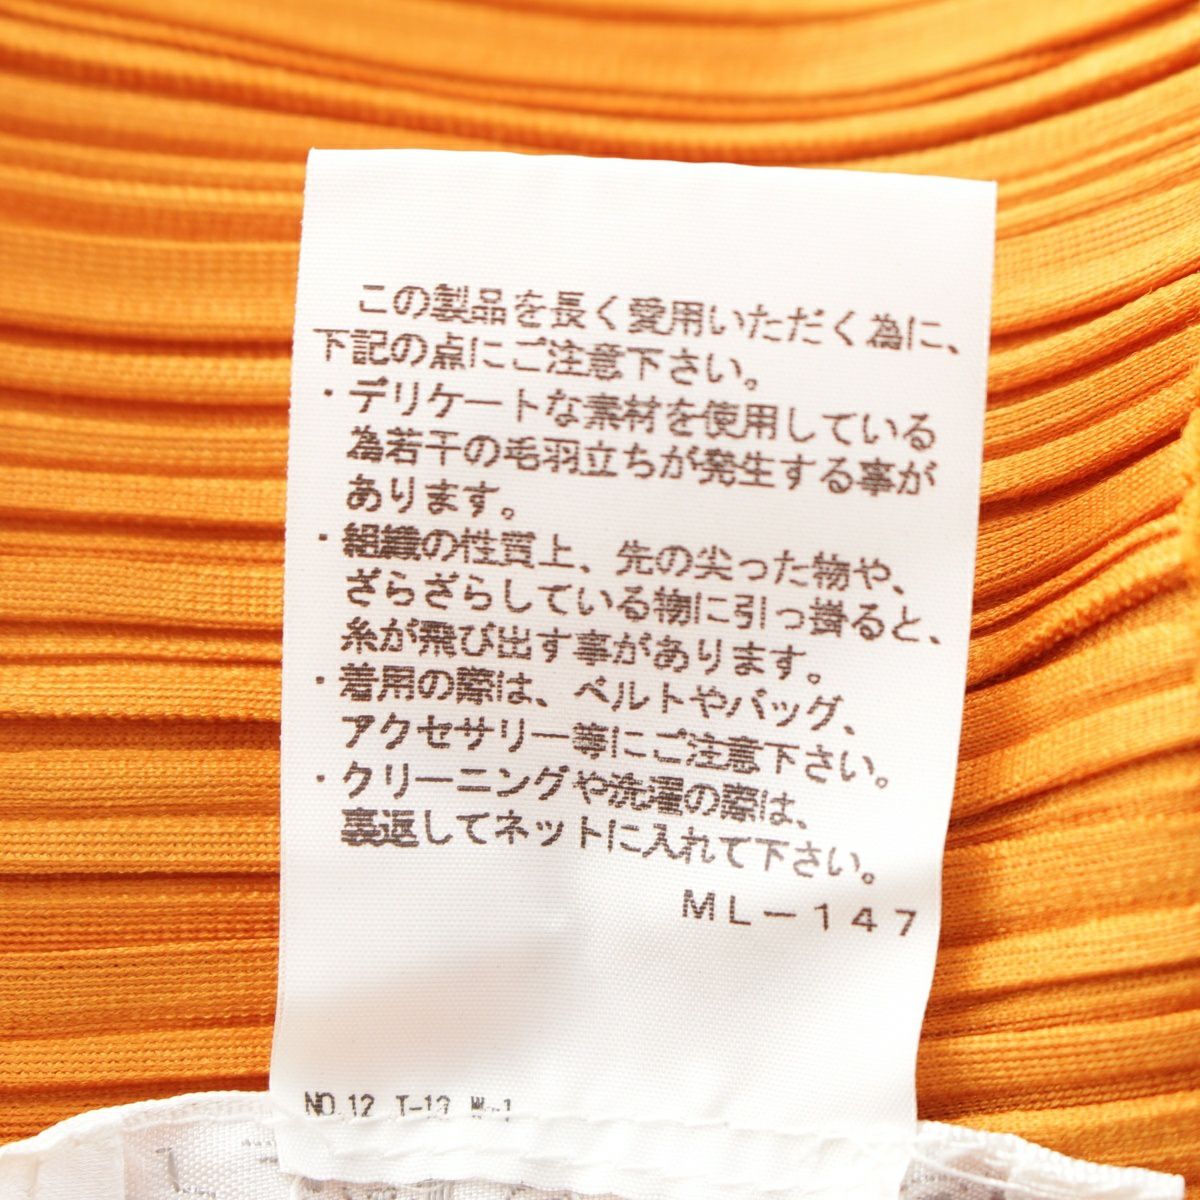 この製品を長く愛用いただく為に、
下記の点にご注意下さい。
・デリケートな素材を使用している
為若干の毛羽立ちが発生する事が
あります。
・組織の性質上、先の尖った物や、
ざらざらしている物に引っ掛ると、
糸が飛び出す事があります。
・着用の際は、ベルトやバッグ、
アクセサリー等にご注意下さい。
・クリーニングや洗濯の際は、
裏返してネットに入れて下さい。
ML-147
NO.12 T-12 W-1